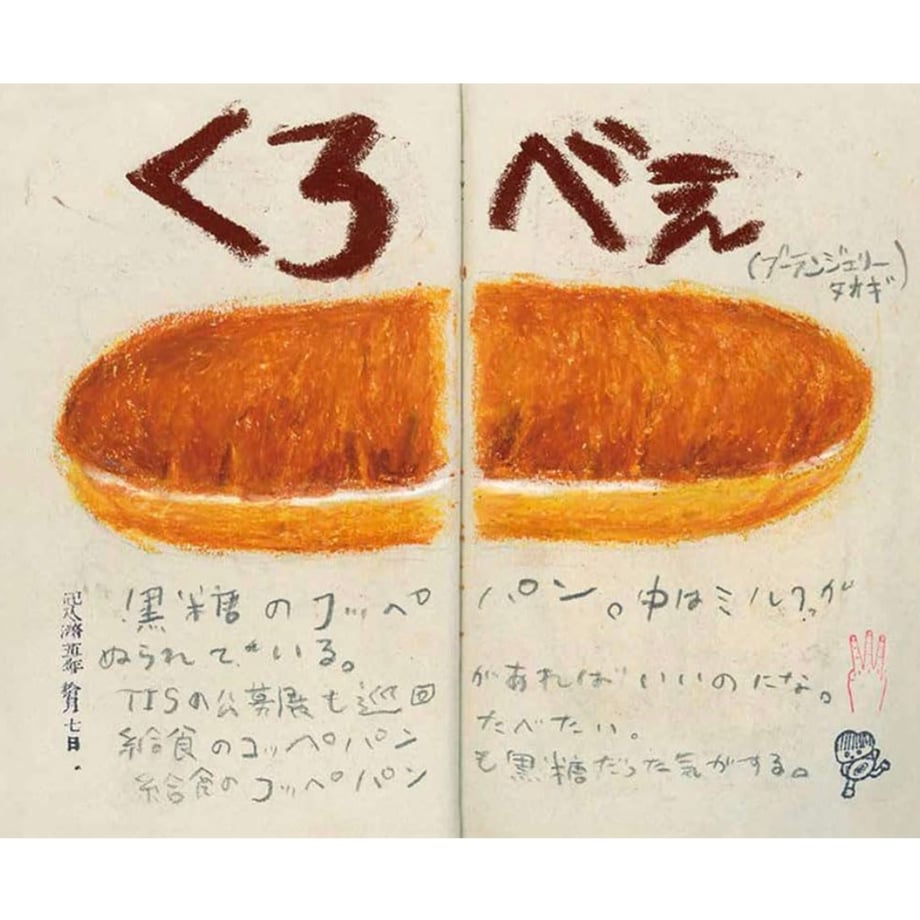 くろべぇ
(ブーランジェリー
タオギ)
黒糖のコッペパン。中はミルクが
ぬられている。
TISの公募展も巡回があればいいのにな。
給食のコッペパンたべたい。
給食のコッペパンも黒糖だった気がする。
記入済 五年 拾月 七日